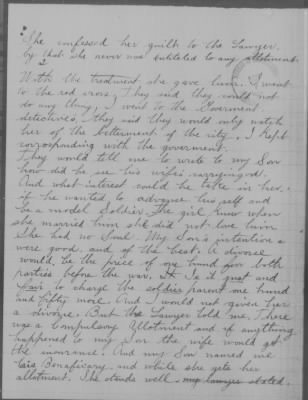 She confessed her guilt to the Lawyer.
by that she never was entitled to any allotment.
2
With the treatment she gave him. I went
to the red cross, They said they could not
do any thing, I went to the Goverment.
detectives, they said they would only watch
her of the betterment of the city. I kept
corrosponding with the government.
They would tell me to write to my Son
how did he see his wife's carrying on.
And what interest could he take in her.
if he wanted to advance his self and
be a model Soldier. The girl knew when
she married him she did not love him.
She had no Soul. My Son's intentions
were good, and of the best. A divorce
would be the price of one hund for both
parties before the war. It Is it just and
fair to charge the soldier parent one hund
and fifty more. And I would not given her
a divorce. But the Lawyer told me, There
was a Compulsory Allotment and if anything
happened to my Son the wife would get
the insurance. And my Son named me
his Beneficary. and while she gets her
allotment. She stands well. my lawyer stated.